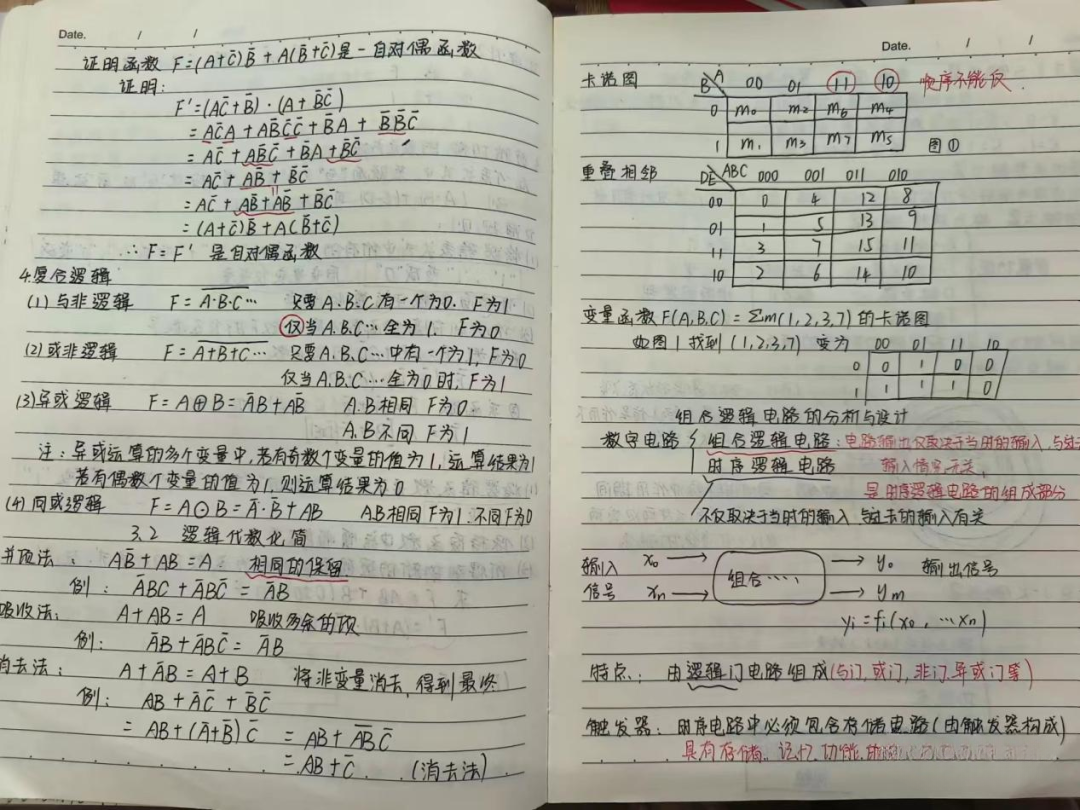 Date. / /
证明函数 F=(A+C̄)B̄ + A(B̄+C̄)是一自对偶函数
证明:
F'=(AC̄+B̄)·(A+B̄C̄)
= AC̄A + AB̄C̄C̄ + B̄A + B̄B̄C̄
= AC̄ + AB̄C̄ + B̄A + B̄C̄
= AC̄ + AB̄ + B̄C̄
= AC̄ + AB̄+AB̄ + B̄C̄
= (A+C̄)B̄ + A(B̄+C̄)
∴ F=F' 是自对偶函数
4.复合逻辑
(1)与非逻辑 F= \overline{A·B·C…} 只要A.B.C有一个为0. F为1
仅当A.B.C…全为1, F为0
(2)或非逻辑 F= \overline{A+B+C…} 只要A.B.C…中有一个为1, F为0
仅当A.B.C…全为0时, F为1
(3)异或逻辑 F=A⊕B=ĀB+AB̄ A.B相同 F为0
A.B不同 F为1
注:异或运算的多个变量中,若有奇数个变量的值为1,运算结果为1
若有偶数个变量的值为1,则运算结果为0
(4)同或逻辑 F=A⊙B=Ā·B̄+AB A.B相同F为1.不同F为0
3.2 逻辑代数化简
并项法: AB̄+AB=A 相同的保留
例: ĀBC+ĀBC̄ = ĀB
吸收法: A+AB=A 吸收多余的项
例: ĀB+ĀBC̄ = ĀB
消去法: A+ĀB=A+B 将非变量消去,得到最终
例: AB+ĀC̄+B̄C̄
= AB+(Ā+B̄)C̄ = AB+\overline{AB}C̄
= AB+C̄ (消去法)
Date. / /
卡诺图 B A 00 01 11 10 顺序不能反
0 m₀ m₂ m₆ m₄
1 m₁ m₃ m₇ m₅ 图①
重叠相邻 DE ABC 000 001 011 010
00 0 4 12 8
01 1 5 13 9
11 3 7 15 11
10 2 6 14 10
变量函数F(A,B,C)=Σm(1,2,3,7)的卡诺图
如图1找到(1,2,3,7) 变为 00 01 11 10
0 0 1 0 0
1 1 1 1 0
组合逻辑电路的分析与设计
数字电路 组合逻辑电路:电路输出仅取决于当时的输入,与过去
时序逻辑电路 输入信号无关,
是时序逻辑电路的组成部分
不仅取决于当时的输入,与过去的输入有关
输入 x₀ y₀ 输出信号
信号 xₙ 组合.... yₘ
yᵢ=fᵢ(x₀,…xₙ)
特点: 由逻辑门电路组成(与门,或门,非门,异或门等)
触发器: 时序电路中必须包含存储电路(由触发器构成)
具有存储、记忆功能,